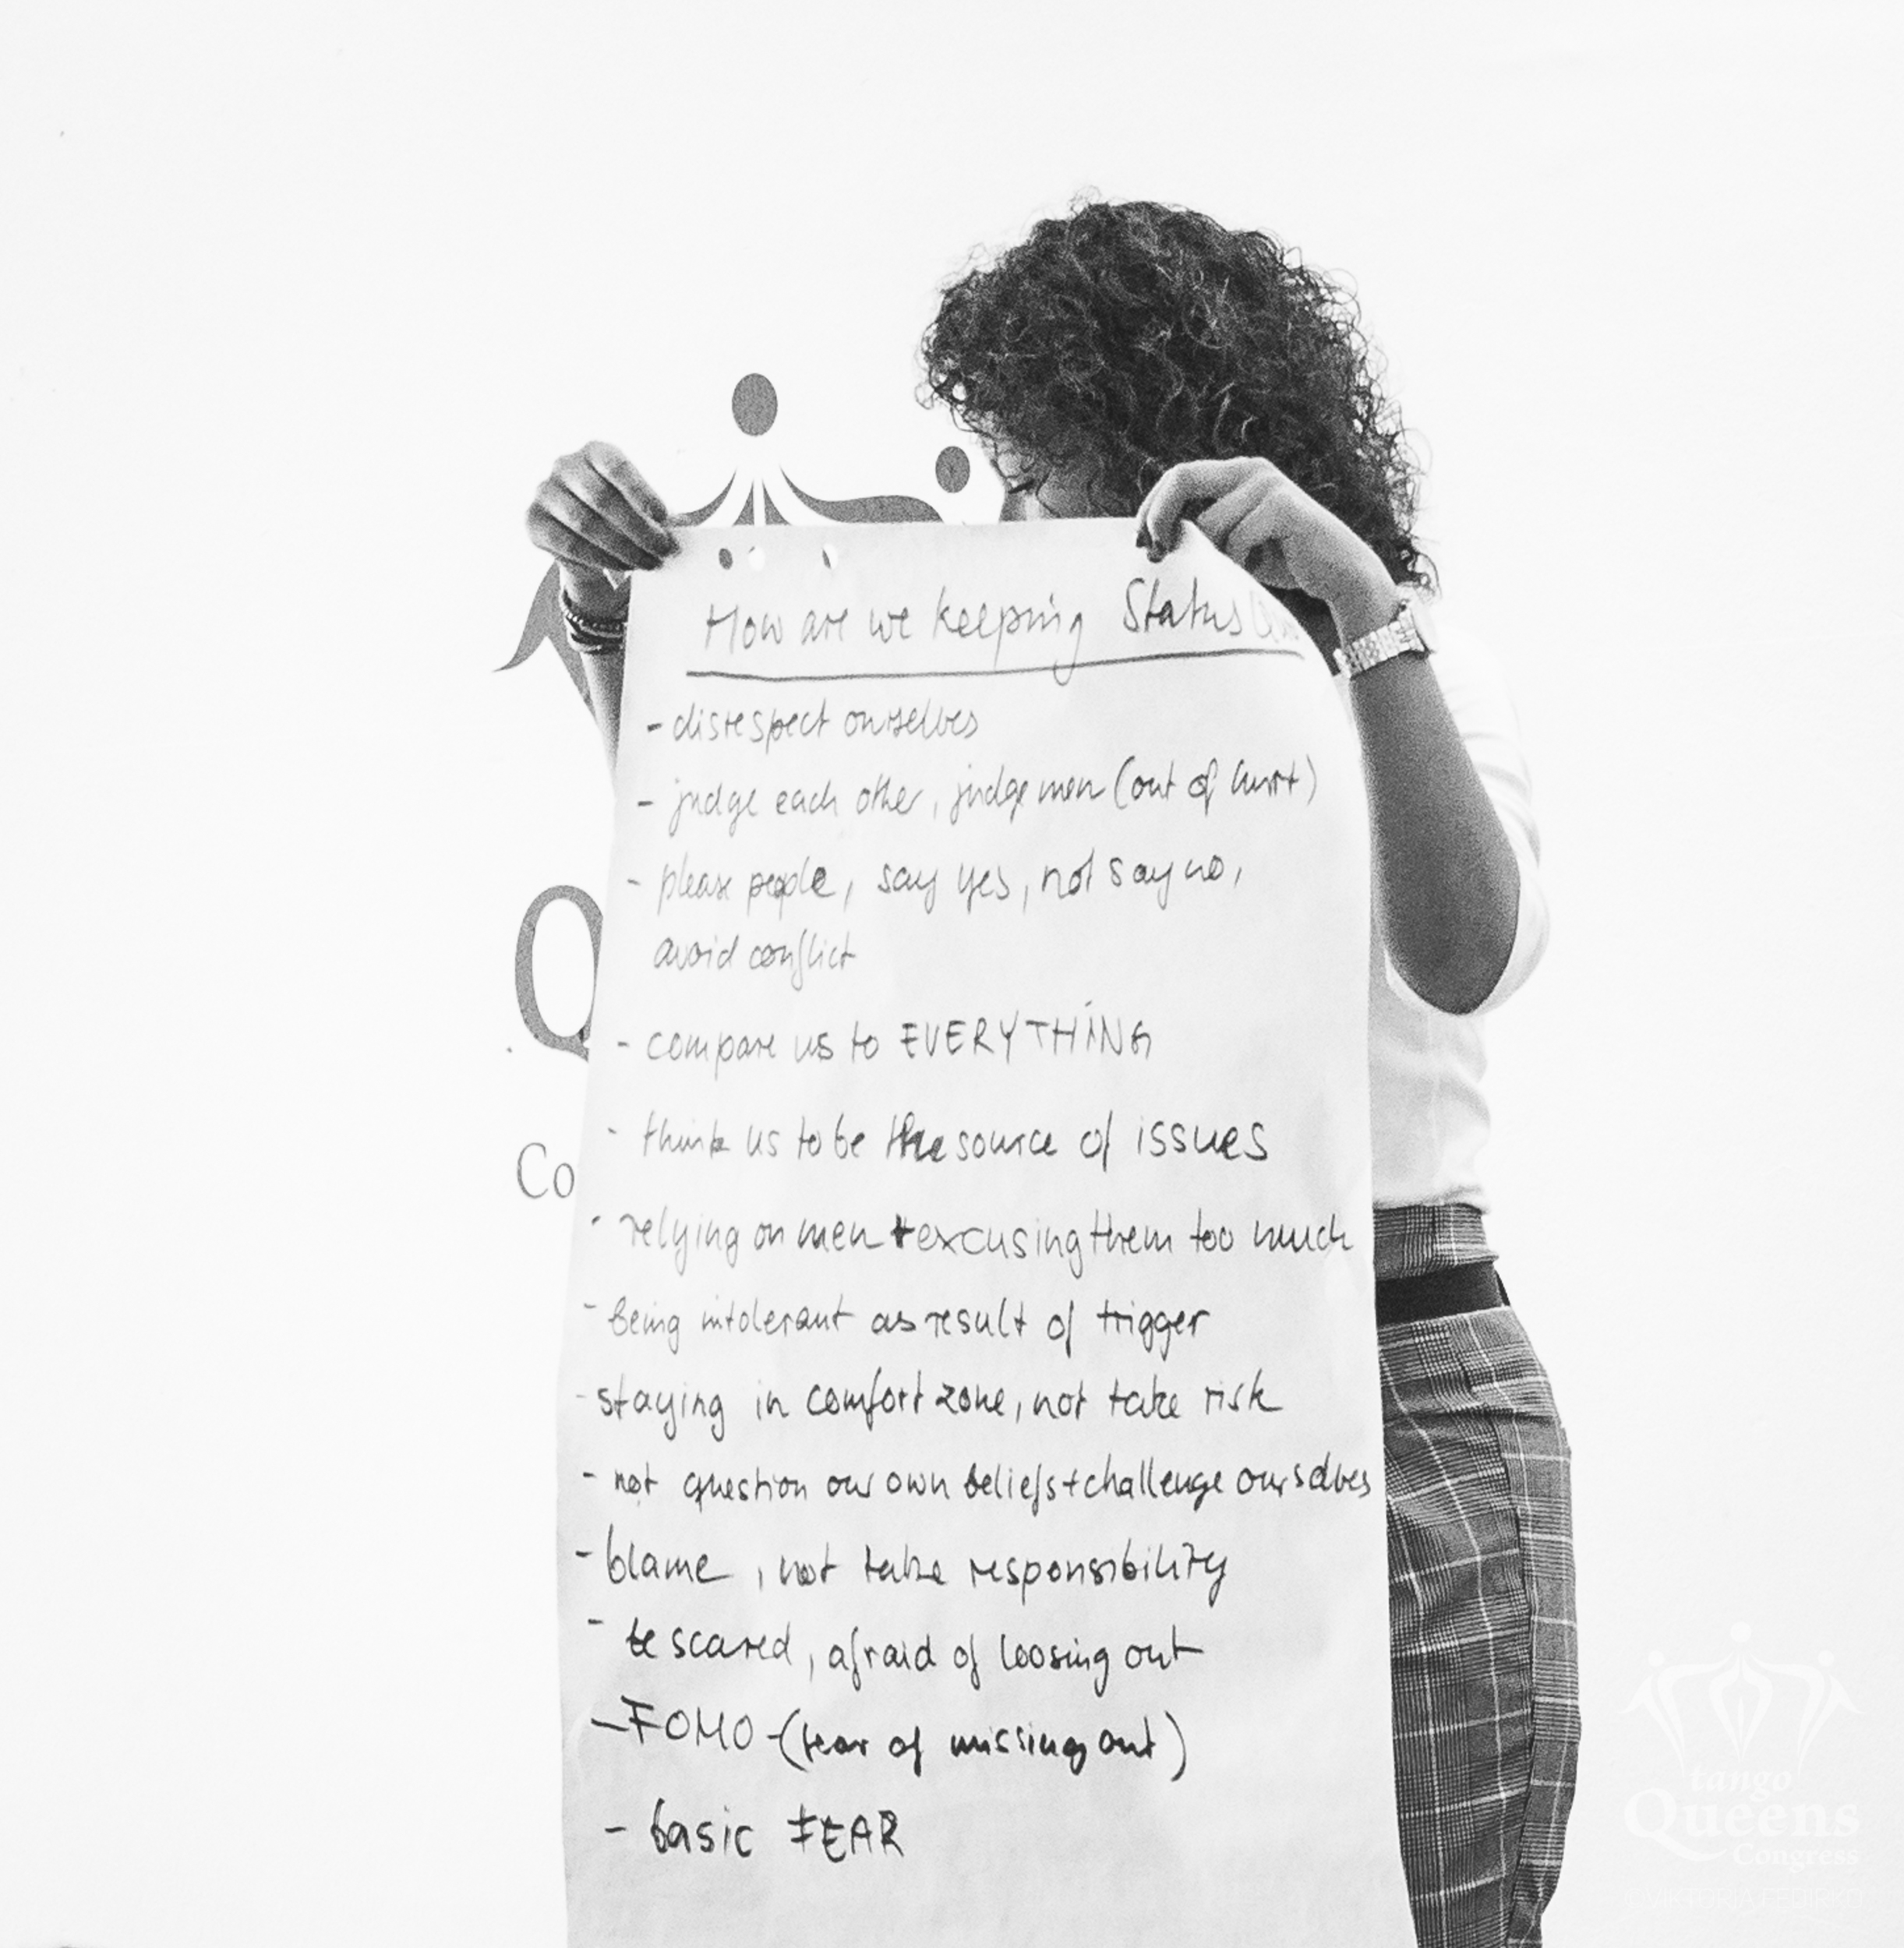 How are we keeping Status Quo
- disrespect ourselves
- judge each other, judge men (out of hurt)
- please people, say yes, not say no,
avoid conflict
- compare us to EVERYTHING
- think us to be the source of issues
- relying on men + excusing them too much
- being intolerant as result of trigger
- staying in comfort zone, not take risk
- not question our own beliefs + challenge ourselves
- blame, not take responsibility
- be scared, afraid of loosing out
- FOMO - (fear of missing out)
- basic FEAR
Q
Co
tango
Queens
Congress